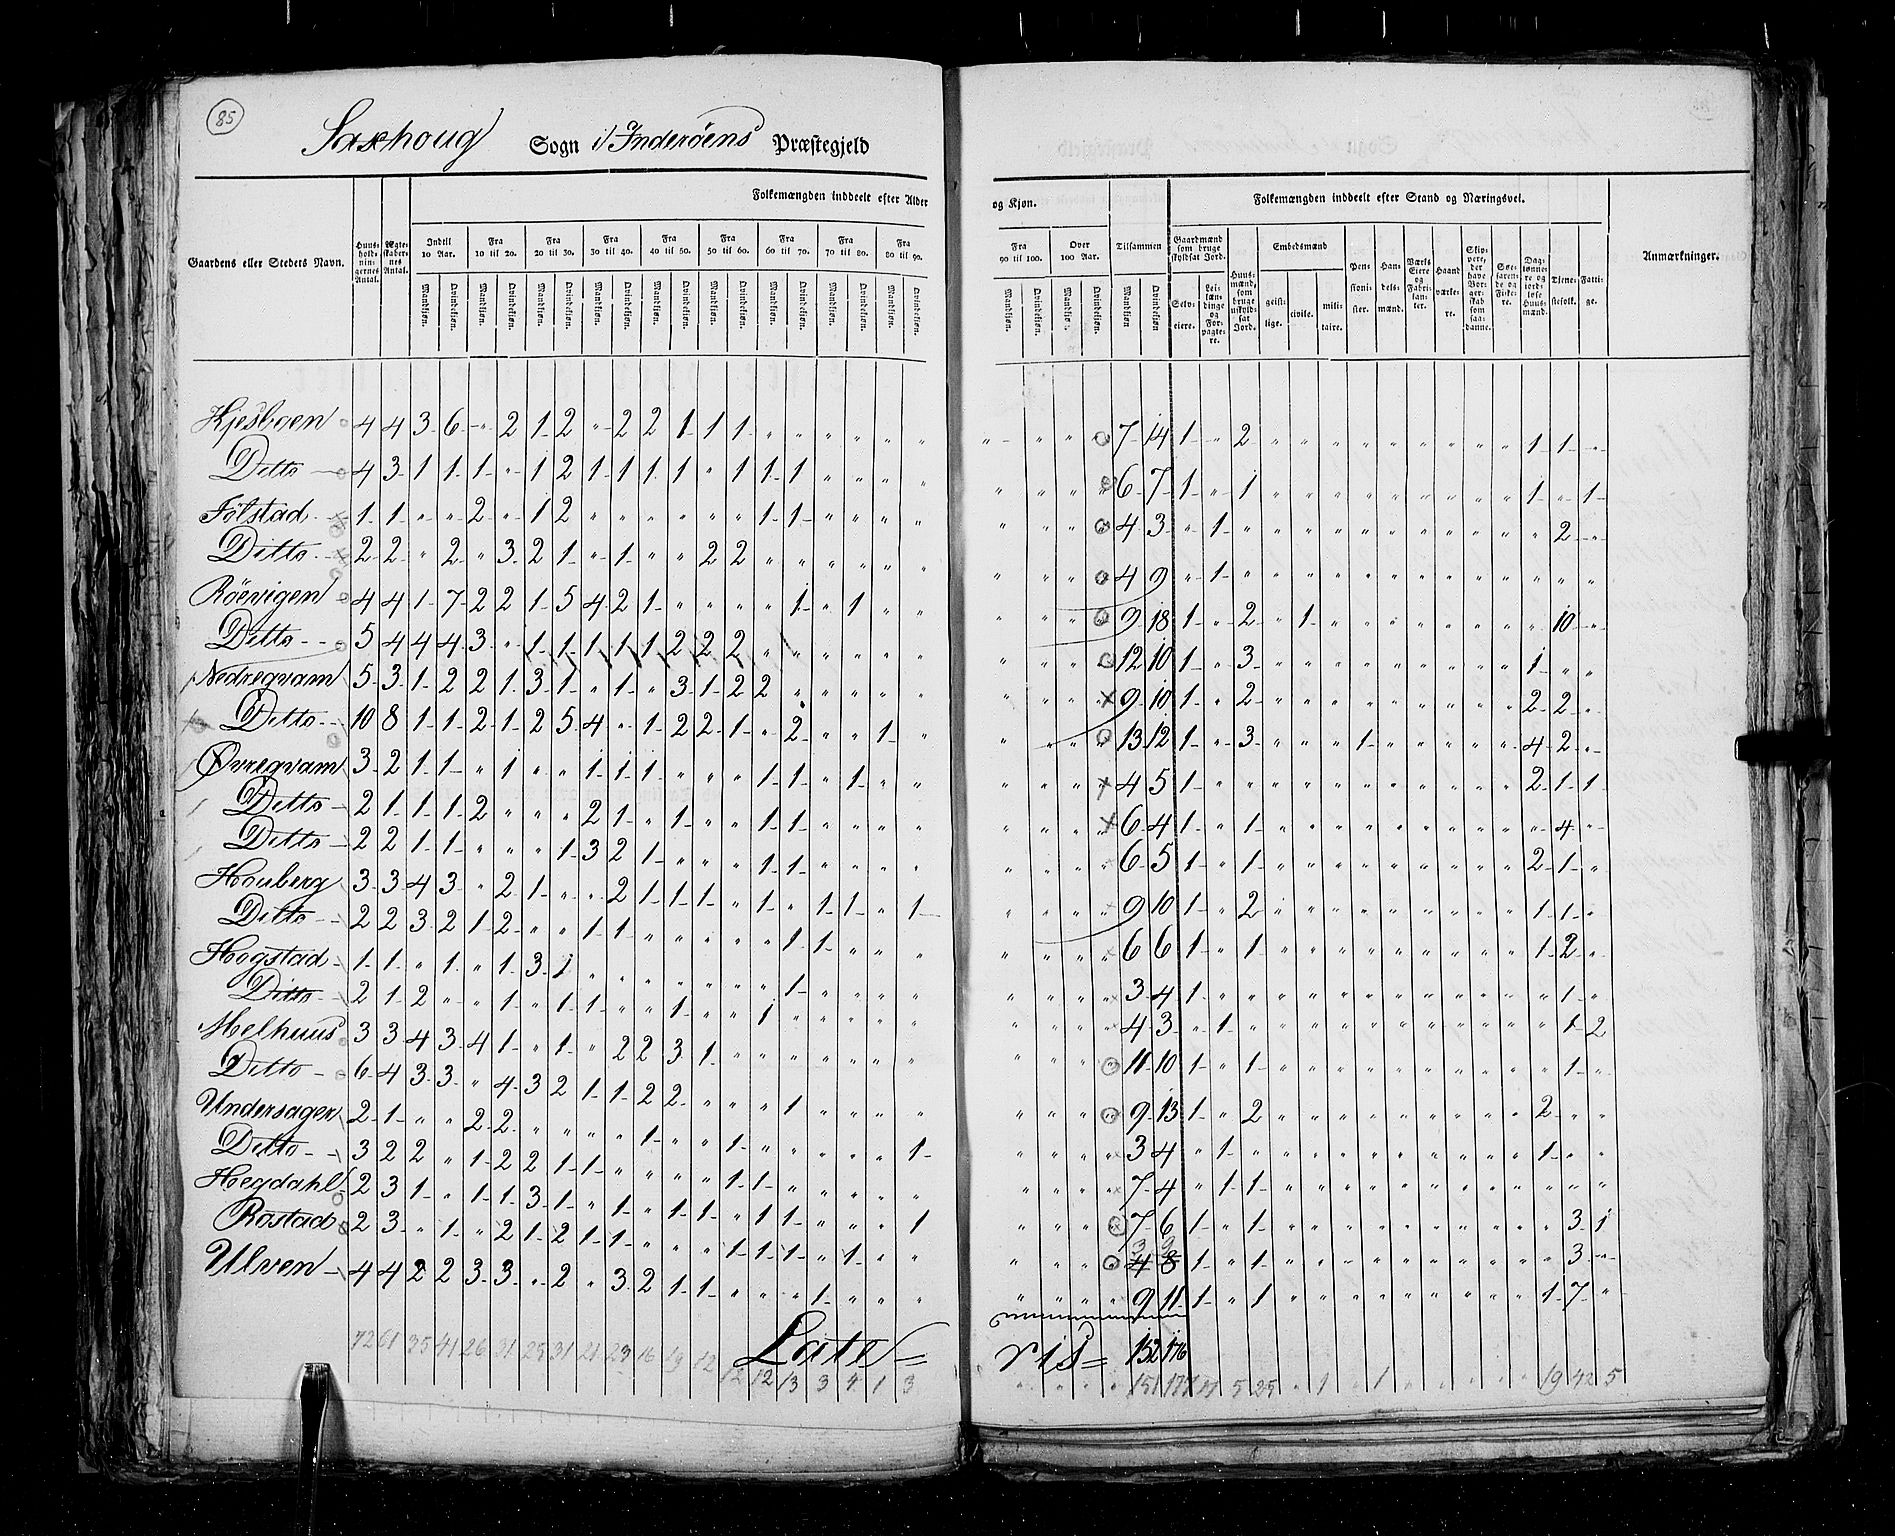 85
Saxhoug Sogn i Inderöens Præstegjeld
Folkemængden inddeelt efter Alder og Kjøn.
Folkemængden inddeelt efter Stand og Næringsvei.
Gaardens eller Stedets Navn.
Huus-holdnin-gernes Antal.
Ægte-skaber-nes Antal.
Indtil 10 Aar.
Fra 10 til 20.
Fra 20 til 30.
Fra 30 til 40.
Fra 40 til 50.
Fra 50 til 60.
Fra 60 til 70.
Fra 70 til 80.
Fra 80 til 90.
Fra 90 til 100.
Over 100 Aar.
Tilsammen
Mandkjøn. Qvindekjøn.
Gaardmænd som bruge skyldsat Jord.
Selv-eiere.
Lei-læn-dinge og For-pagte-re.
Huus-mænd, som bruge uskyld-sat Jord.
Embedsmænd
geist-lige.
civile.
mili-taire.
Pen-sioni-ster.
Han-dels-mænd.
Værks Eiere og Fabri-kan-ter.
Haand værke-re.
Skip-pere, der have Bor-ger-skab som saa-danne.
Søe-faren-de og Fiske-re.
Dag-lønne-re og jord-løse Huus-mænd.
Tjene-stefolk.
Fatti-ge.
Anmærkninger.
Kjesboen 4 4 3 6 " 2 1 2 " 2 2 1 1 1 " " " " " " " " " " 7 14 1 " 2 " " " " " " " " " 1 1 "
Ditto 4 3 1 1 1 " 1 2 1 1 1 1 " 1 1 1 " " " " " " " " 6 7 1 " 1 " " " " " " " " " 1 " 1
Følstad 1 1 " " 2 " 1 2 " " " " " " 1 1 " " " " " " " " 4 3 " 1 " " " " " " " " " " " 2 "
Ditto 2 2 " 2 " 3 2 1 " 1 " " 2 2 " " " " " " " " " " 4 9 " 1 " " " " " " " " " " " " "
Röevigen 4 4 1 7 2 2 1 5 4 2 1 " " " " 1 " 1 " " " " " " 9 18 1 " 2 " 1 " " " " " " " " 10 "
Ditto 5 4 4 4 3 " 1 1 1 1 1 2 2 2 " " " " " " " " " " 12 10 1 " 3 " " " " " " " " " 1 " "
Nedreqvam 5 3 1 2 2 1 3 1 " 1 " 3 1 2 2 " " " " " " " " " 9 10 1 " 2 " " " " " " " " " 2 2 "
Ditto 10 8 1 1 2 1 2 5 4 " 1 2 2 1 " 2 " " 1 " " " " " 13 12 1 " 3 " " " 1 " " " " " 4 2 "
Øvreqvam 3 2 1 1 " 1 " " 1 1 1 " " " 1 1 " 1 " " " " " " 4 5 1 " " " " " " " " " " " 2 1 1
Ditto 2 1 1 1 2 " " " 2 1 " 1 " " 1 1 " " " " " " " " 6 4 1 " 1 " " " " " " " " " " 4 "
Ditto 2 2 1 1 " " " 1 3 2 1 " " " 1 1 " " " " " " " " 6 5 1 " 1 " " " " " " " " " 2 1 "
Houberg 3 3 4 3 " 2 1 " " 2 1 1 1 " 1 " 1 1 " 1 " " " " 9 10 1 " 2 " " " " " " " " " 1 1 "
Ditto 2 2 3 2 1 2 " " 1 1 " " " " " 1 1 " " " " " " " 6 6 1 " 1 " " " " " " " " " 1 2 "
Hogstad 1 1 " 1 " 1 3 1 " " " " " " " 1 " " " " " " " " 3 4 1 " " " " " " " " " " " " 1 "
Ditto 2 1 2 " " 1 " 1 1 " " 1 " " 1 " " " " " " " " " 4 3 " 1 " " " " " " " " " " " 1 2
Melhuus 3 3 4 3 4 1 " 1 " 2 2 3 1 " " " " " " " " " " " 11 10 1 " 1 " " " " " " " " " " 1 "
Ditto 6 4 3 3 " 4 3 2 1 1 2 2 " " " 1 " " " " " " " " 9 13 1 " 2 " " " " " " " " " 2 " "
Undersager 2 1 " " 2 2 " " " " 1 " " 1 " " " " " 1 " " " " 3 4 " 1 " " " " " " " " " " 1 " "
Ditto 3 2 2 " 1 2 2 1 1 " " " " 1 1 " " " " " " " " " 7 4 " 1 1 " " " " " " " " " " " "
Hegdahl 2 3 1 " 1 1 3 1 " 1 " 1 1 " 1 1 " " " 1 " " " " 7 6 1 " 1 " " " " " " " " " " 3 1
Rostad 2 3 " 1 " 2 1 2 1 1 " " " 1 1 1 " 1 " " " " " " 4 8 1 " 1 " " " " " " " " " " 3 "
Ulven 4 4 2 2 3 3 " 2 " 3 2 1 1 " " " 1 " " " " " " " 9 11 1 " 1 " " " " " " " " " 1 7 "
Late = ris = 152 176
72 61 35 41 26 31 29 31 21 23 16 19 12 12 12 13 3 4 1 3 " " " " 151 177 17 5 25 " 1 " 1 " " " " " 19 42 5